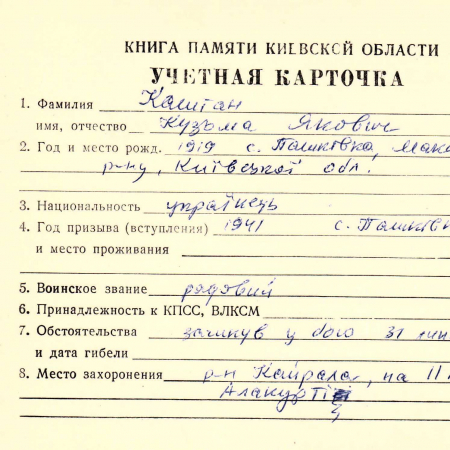 КНИГА ПАМЯТИ КИЕВСКОЙ ОБЛАСТИ
УЧЕТНАЯ КАРТОЧКА
1. Фамилия Каштан
имя, отчество Кузьма Якович
2. Год и место рожд. 1919 с. Пашківка, Мака
р-ну, Київської обл.
3. Национальность українець
4. Год призыва (вступления) 1941 с. Пашківк
и место проживания
5. Воинское звание рядовий
6. Принадлежность к КПСС, ВЛКСМ
7. Обстоятельства загинув у бою 31 лип
и дата гибели
8. Место захоронения р-н Кайрала, на 11
Алакурті